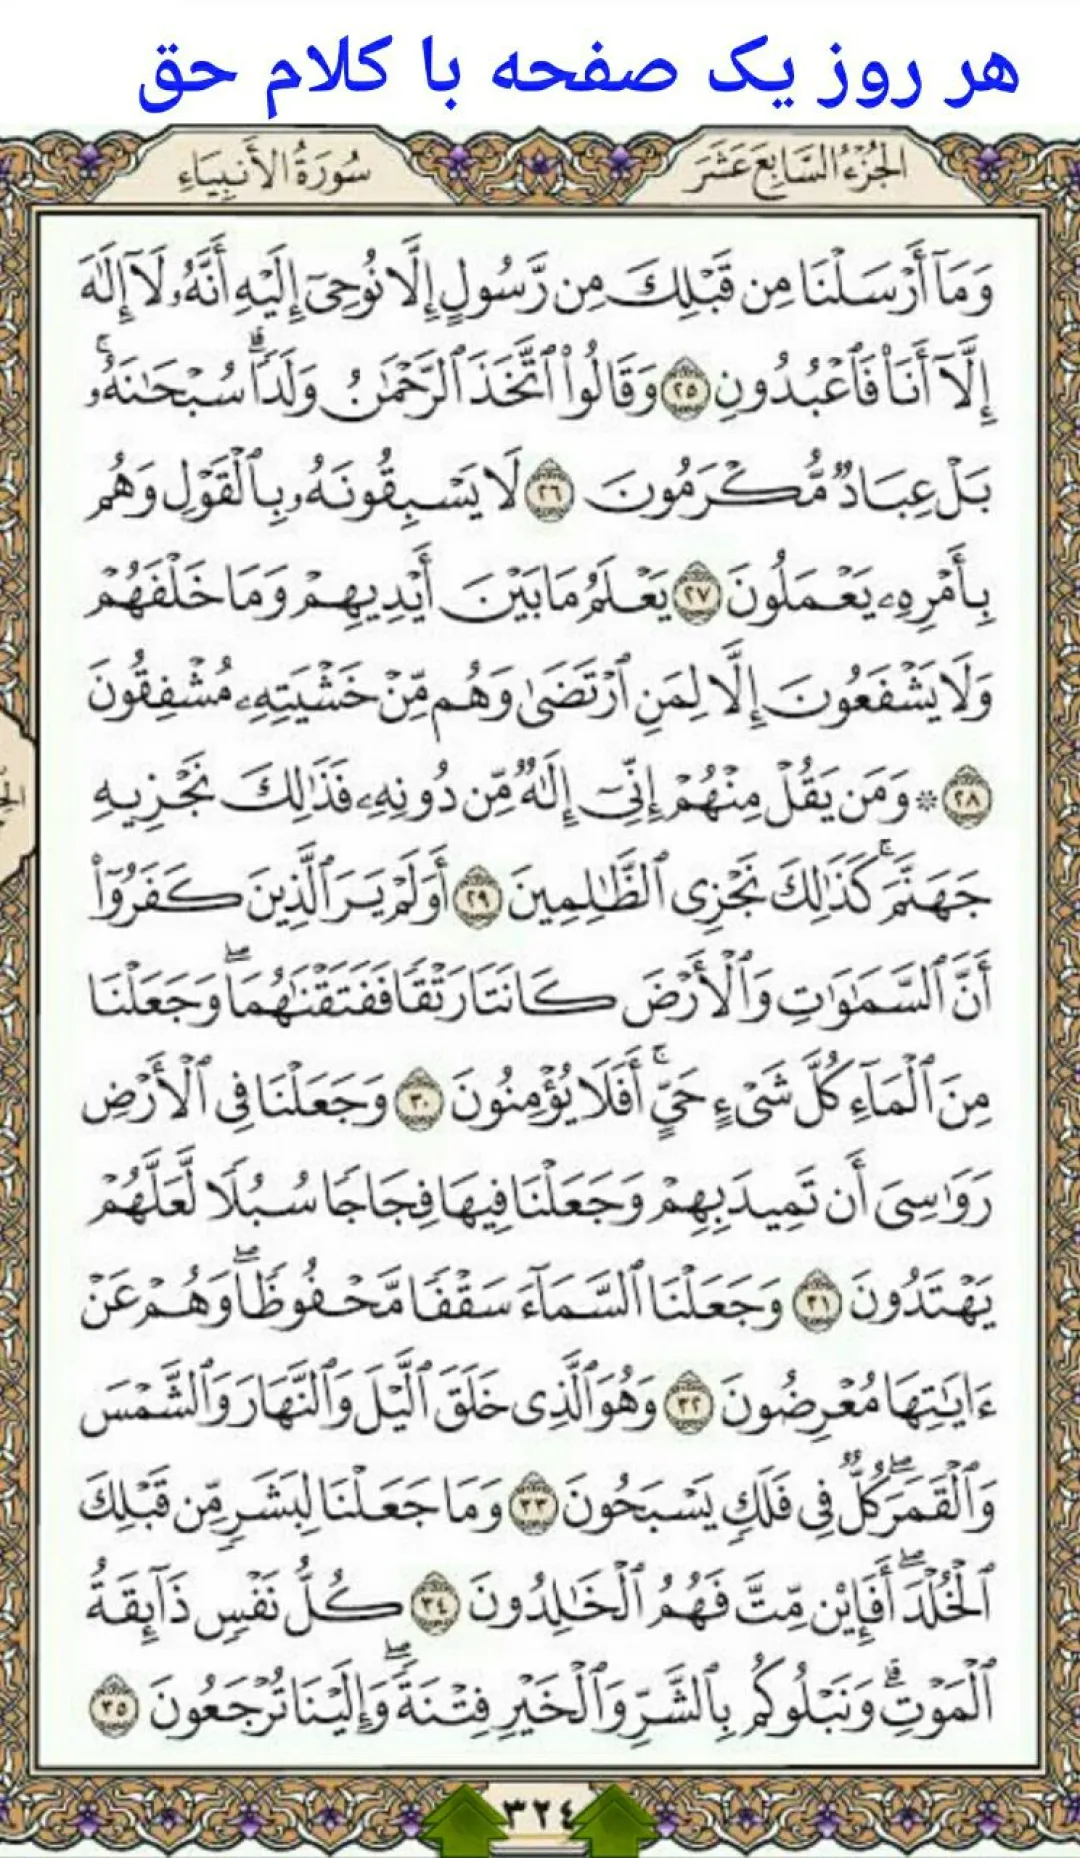 هر روز یک صفحه با کلام حق
الجُزْءُ السَّابِعَ عَشَرَ
سُورَةُ الأَنبِيَاءِ
وَمَآ أَرْسَلْنَا مِن قَبْلِكَ مِن رَّسُولٍ إِلَّا نُوحِىٓ إِلَيْهِ أَنَّهُۥ لَآ إِلَٰهَ
إِلَّآ أَنَا۠ فَٱعْبُدُونِ ٢٥ وَقَالُوا۟ ٱتَّخَذَ ٱلرَّحْمَٰنُ وَلَدًا ۗ سُبْحَٰنَهُۥ ۚ
بَلْ عِبَادٌ مُّكْرَمُونَ ٢٦ لَا يَسْبِقُونَهُۥ بِٱلْقَوْلِ وَهُم
بِأَمْرِهِۦ يَعْمَلُونَ ٢٧ يَعْلَمُ مَا بَيْنَ أَيْدِيهِمْ وَمَا خَلْفَهُمْ
وَلَا يَشْفَعُونَ إِلَّا لِمَنِ ٱرْتَضَىٰ وَهُم مِّنْ خَشْيَتِهِۦ مُشْفِقُونَ
٢٨ ۞ وَمَن يَقُلْ مِنْهُمْ إِنِّىٓ إِلَٰهٌ مِّن دُونِهِۦ فَذَٰلِكَ نَجْزِيهِ
جَهَنَّمَ ۚ كَذَٰلِكَ نَجْزِى ٱلظَّٰلِمِينَ ٢٩ أَوَلَمْ يَرَ ٱلَّذِينَ كَفَرُوٓا۟
أَنَّ ٱلسَّمَٰوَٰتِ وَٱلْأَرْضَ كَانَتَا رَتْقًا فَفَتَقْنَٰهُمَا ۖ وَجَعَلْنَا
مِنَ ٱلْمَآءِ كُلَّ شَىْءٍ حَىٍّ ۖ أَفَلَا يُؤْمِنُونَ ٣٠ وَجَعَلْنَا فِى ٱلْأَرْضِ
رَوَٰسِىَ أَن تَمِيدَ بِهِمْ وَجَعَلْنَا فِيهَا فِجَاجًا سُبُلًا لَّعَلَّهُمْ
يَهْتَدُونَ ٣١ وَجَعَلْنَا ٱلسَّمَآءَ سَقْفًا مَّحْفُوظًا ۖ وَهُمْ عَنْ
ءَايَٰتِهَا مُعْرِضُونَ ٣٢ وَهُوَ ٱلَّذِى خَلَقَ ٱلَّيْلَ وَٱلنَّهَارَ وَٱلشَّمْسَ
وَٱلْقَمَرَ ۖ كُلٌّ فِى فَلَكٍ يَسْبَحُونَ ٣٣ وَمَا جَعَلْنَا لِبَشَرٍ مِّن قَبْلِكَ
ٱلْخُلْدَ ۖ أَفَإِي۟ن مِّتَّ فَهُمُ ٱلْخَٰلِدُونَ ٣٤ كُلُّ نَفْسٍ ذَآئِقَةُ
ٱلْمَوْتِ ۗ وَنَبْلُوكُم بِٱلشَّرِّ وَٱلْخَيْرِ فِتْنَةً ۖ وَإِلَيْنَا تُرْجَعُونَ ٣٥
٣٢٤